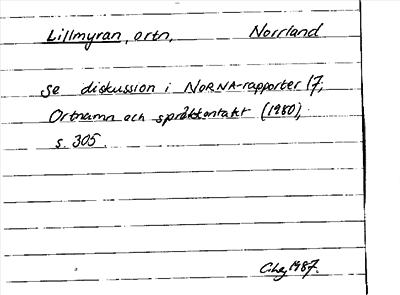 Lillmyran, ortn, Norrland
se diskussion i NORNA-rapporter 17,
Ortnamn och språkkontakt (1980),
s. 305.
1987.